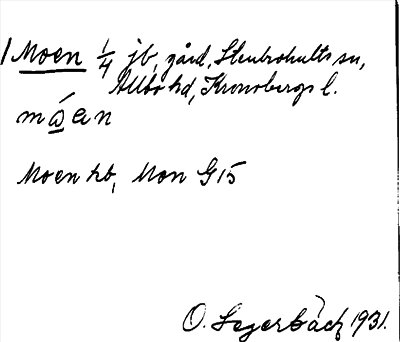 1 Moen 1/4 jb, gård, Stenbrohults sn,
Allbo hd, Kronobergs l.
måen
Moen kb, Mon G15
O. Sagerbäck 1931.